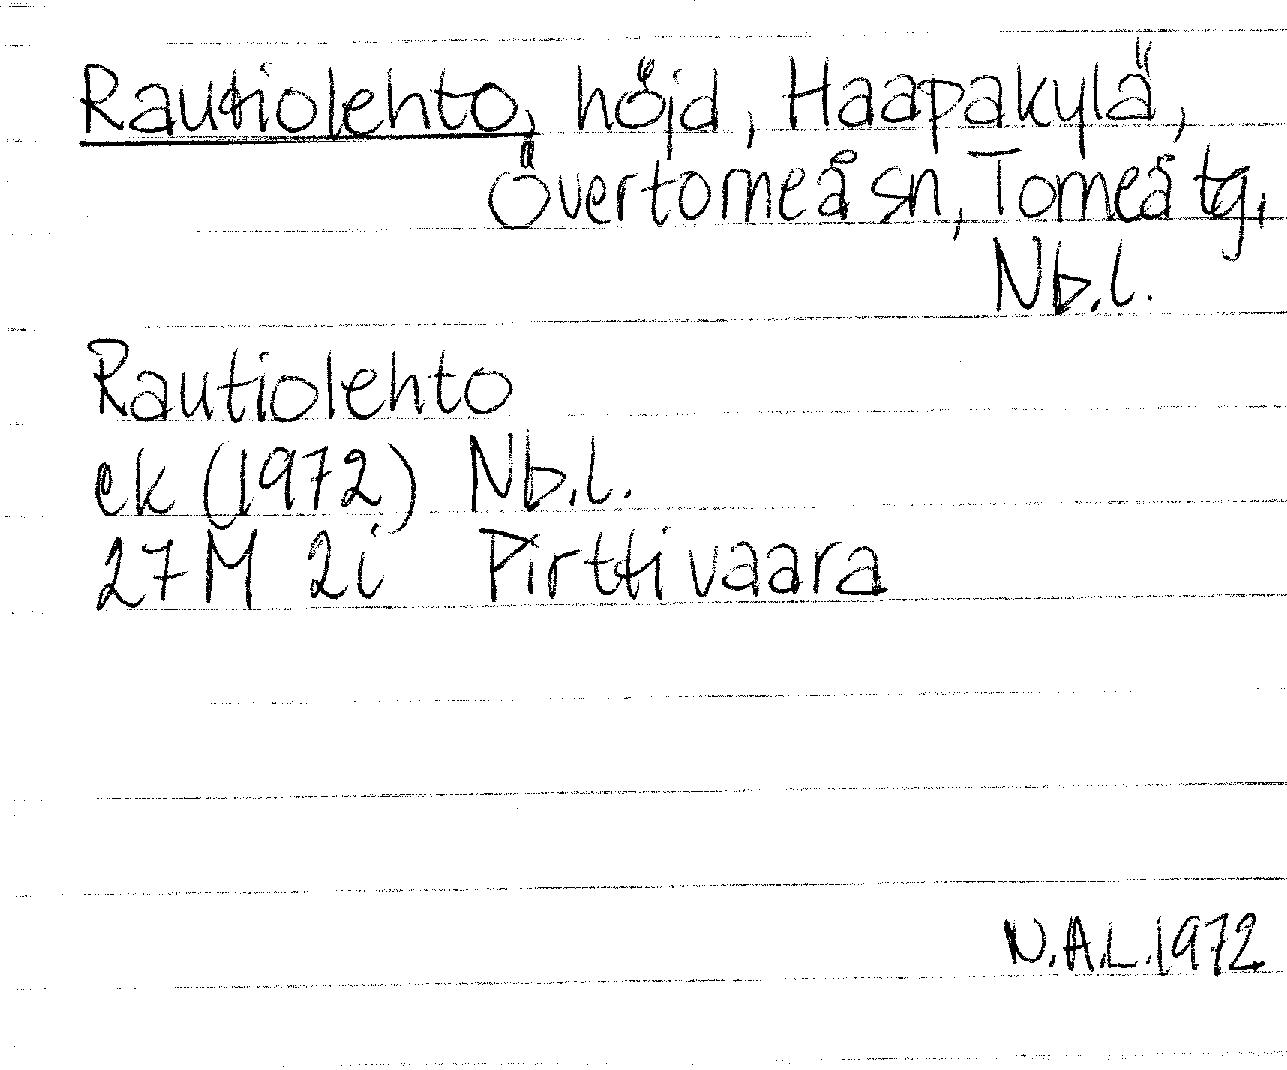 Rautiolehto, höjd, Haapakylä,
Övertorneå sn, Torneå tg,
Nb.l.
Rautiolehto
ek (1972) Nb.l.
27M 2i Pirttivaara
N.A.L. 1972